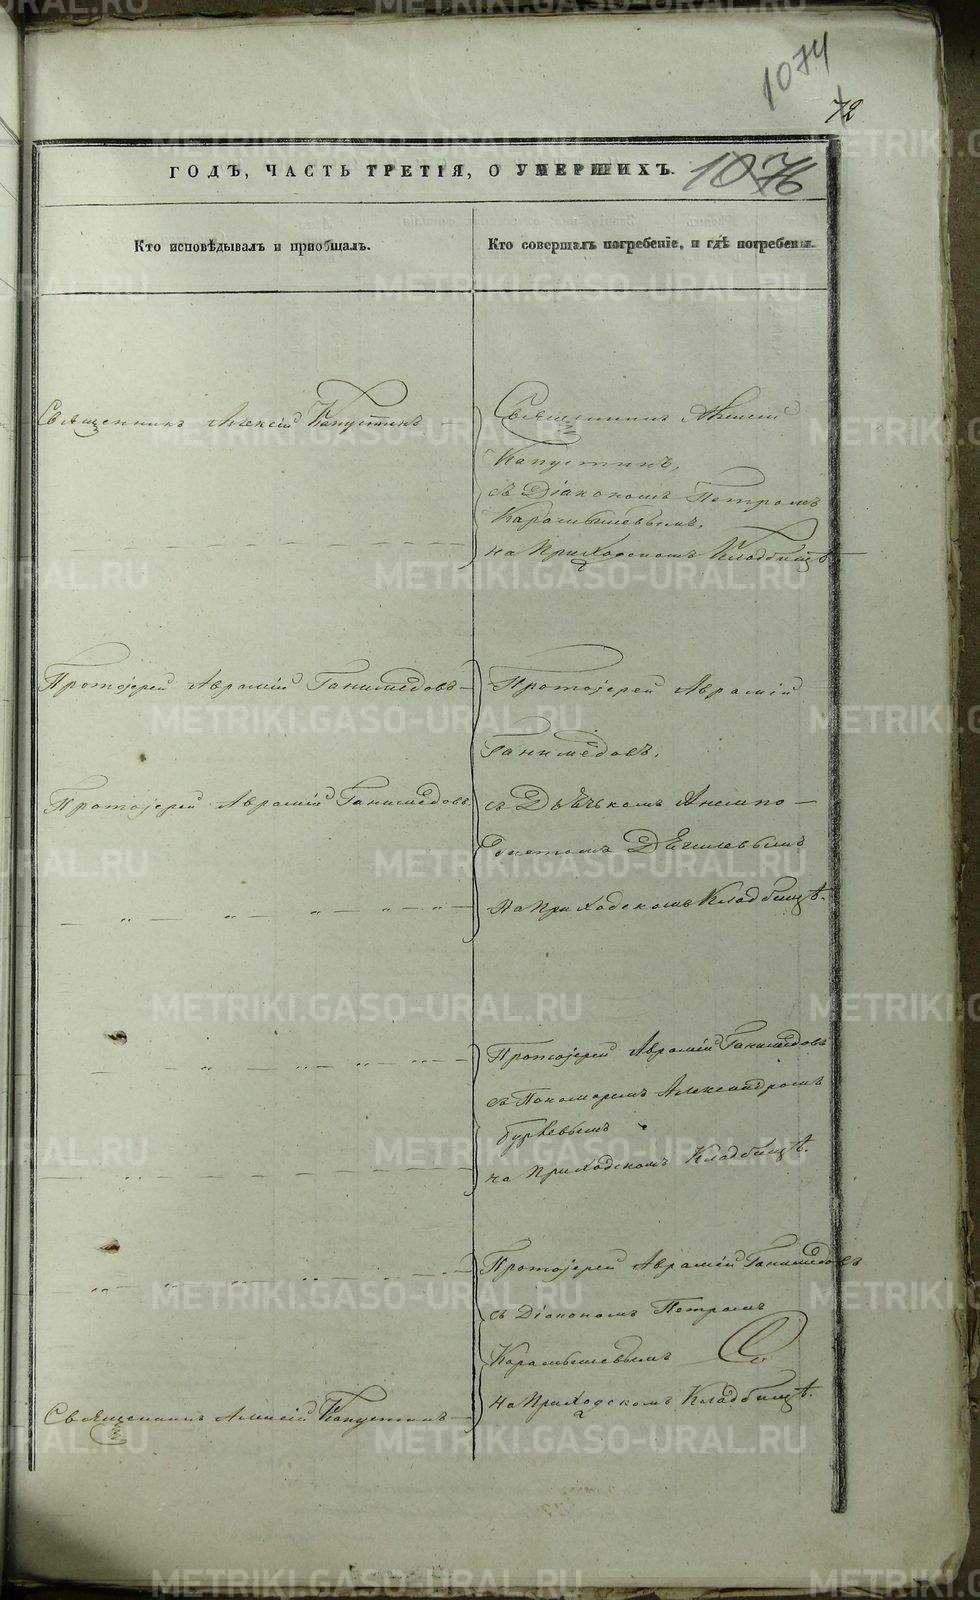 1074
72
ГОДЪ, ЧАСТЬ ТРЕТІЯ, О УМЕРШИХЪ.
1076
Кто исповѣдывалъ и приобщалъ.
Кто совершалъ погребеніе, и гдѣ погребены.
Священникъ Алексій Капустинъ
Священникъ Алексій
Капустинъ,
съ Діакономъ Петромъ
Карамышевымъ,
на Приходскомъ Кладбищѣ.
Протоіерей Аврамій Ганимедовъ
Протоіерей Аврамій
Ганимедовъ,
Протоіерей Аврамій Ганимедовъ
съ Дьячкомъ Анемпо-
дистомъ
на Приходскомъ Кладбищѣ.
Протоіерей Аврамій Ганимедовъ
съ Пономаремъ Александромъ
на Приходскомъ Кладбищѣ.
Протоіерей Аврамій Ганимедовъ
съ Діакономъ Петромъ
Карамышевымъ
на Приходскомъ Кладбищѣ.
Священникъ Алексій Капустинъ
METRIKI.GASO-URAL.RU